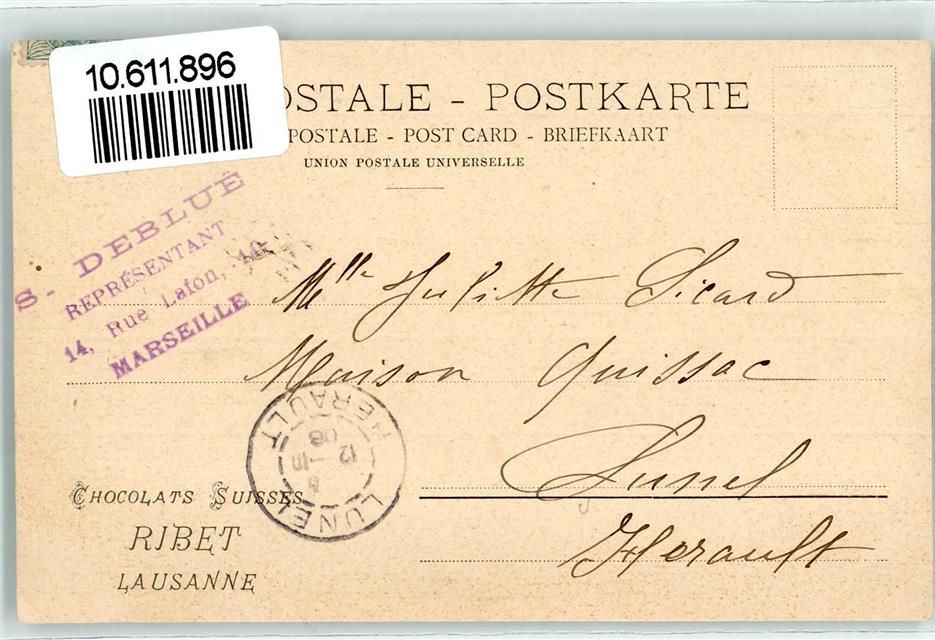 10.611.896
OSTALE - POSTKARTE
POSTALE - POST CARD - BRIEFKAART
UNION POSTALE UNIVERSELLE
S. DEBLUË
REPRÉSENTANT
14, Rue Lafon, 14
MARSEILLE
Mlle Juliette Sicard
Maison Quissac
Lunel
Herault
LUNEL
HERAULT
12
06
CHOCOLATS SUISSES
RIBET
LAUSANNE